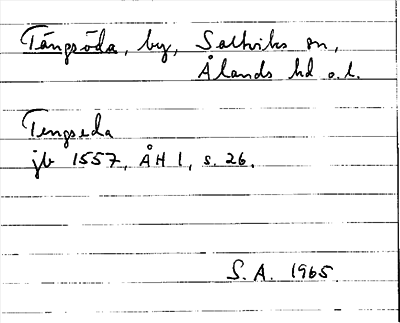 Tängsöda, by, Saltviks sn,
Ålands hd o.l.
Tengseda
jb 1557, ÅH 1, s. 26.
S.A. 1965.